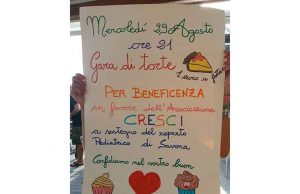 Mercoledí 29 Agosto
ore 21
Gara di torte
1 euro a fetta
PER BENEFICENZA
in favore dell'Associazione
CRESC!
a sostegno del reparto
Pediatrico di Savona
Confidiamo nel vostro buon